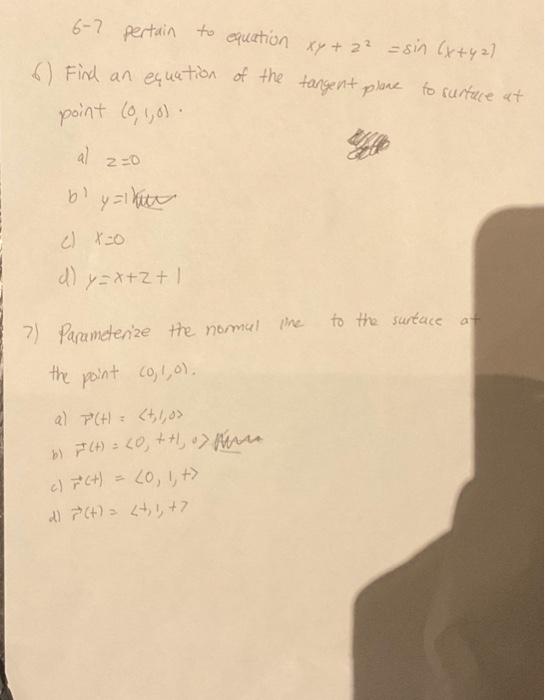 6-7 pertain to equation xy + z² = sin (x+yz)
6) Find an equation of the tangent plane to surface at
point (0,1,0).
a) z=0
b) y=1
c) x=0
d) y=x+z+1
7) Parameterize the normal line to the surface at
the point (0,1,0).
a) r⃗(t) = <t,1,0>
b) r⃗(t) = <0, t+1, 0>
c) r⃗(t) = <0, 1, t>
d) r⃗(t) = <t, 1, t>